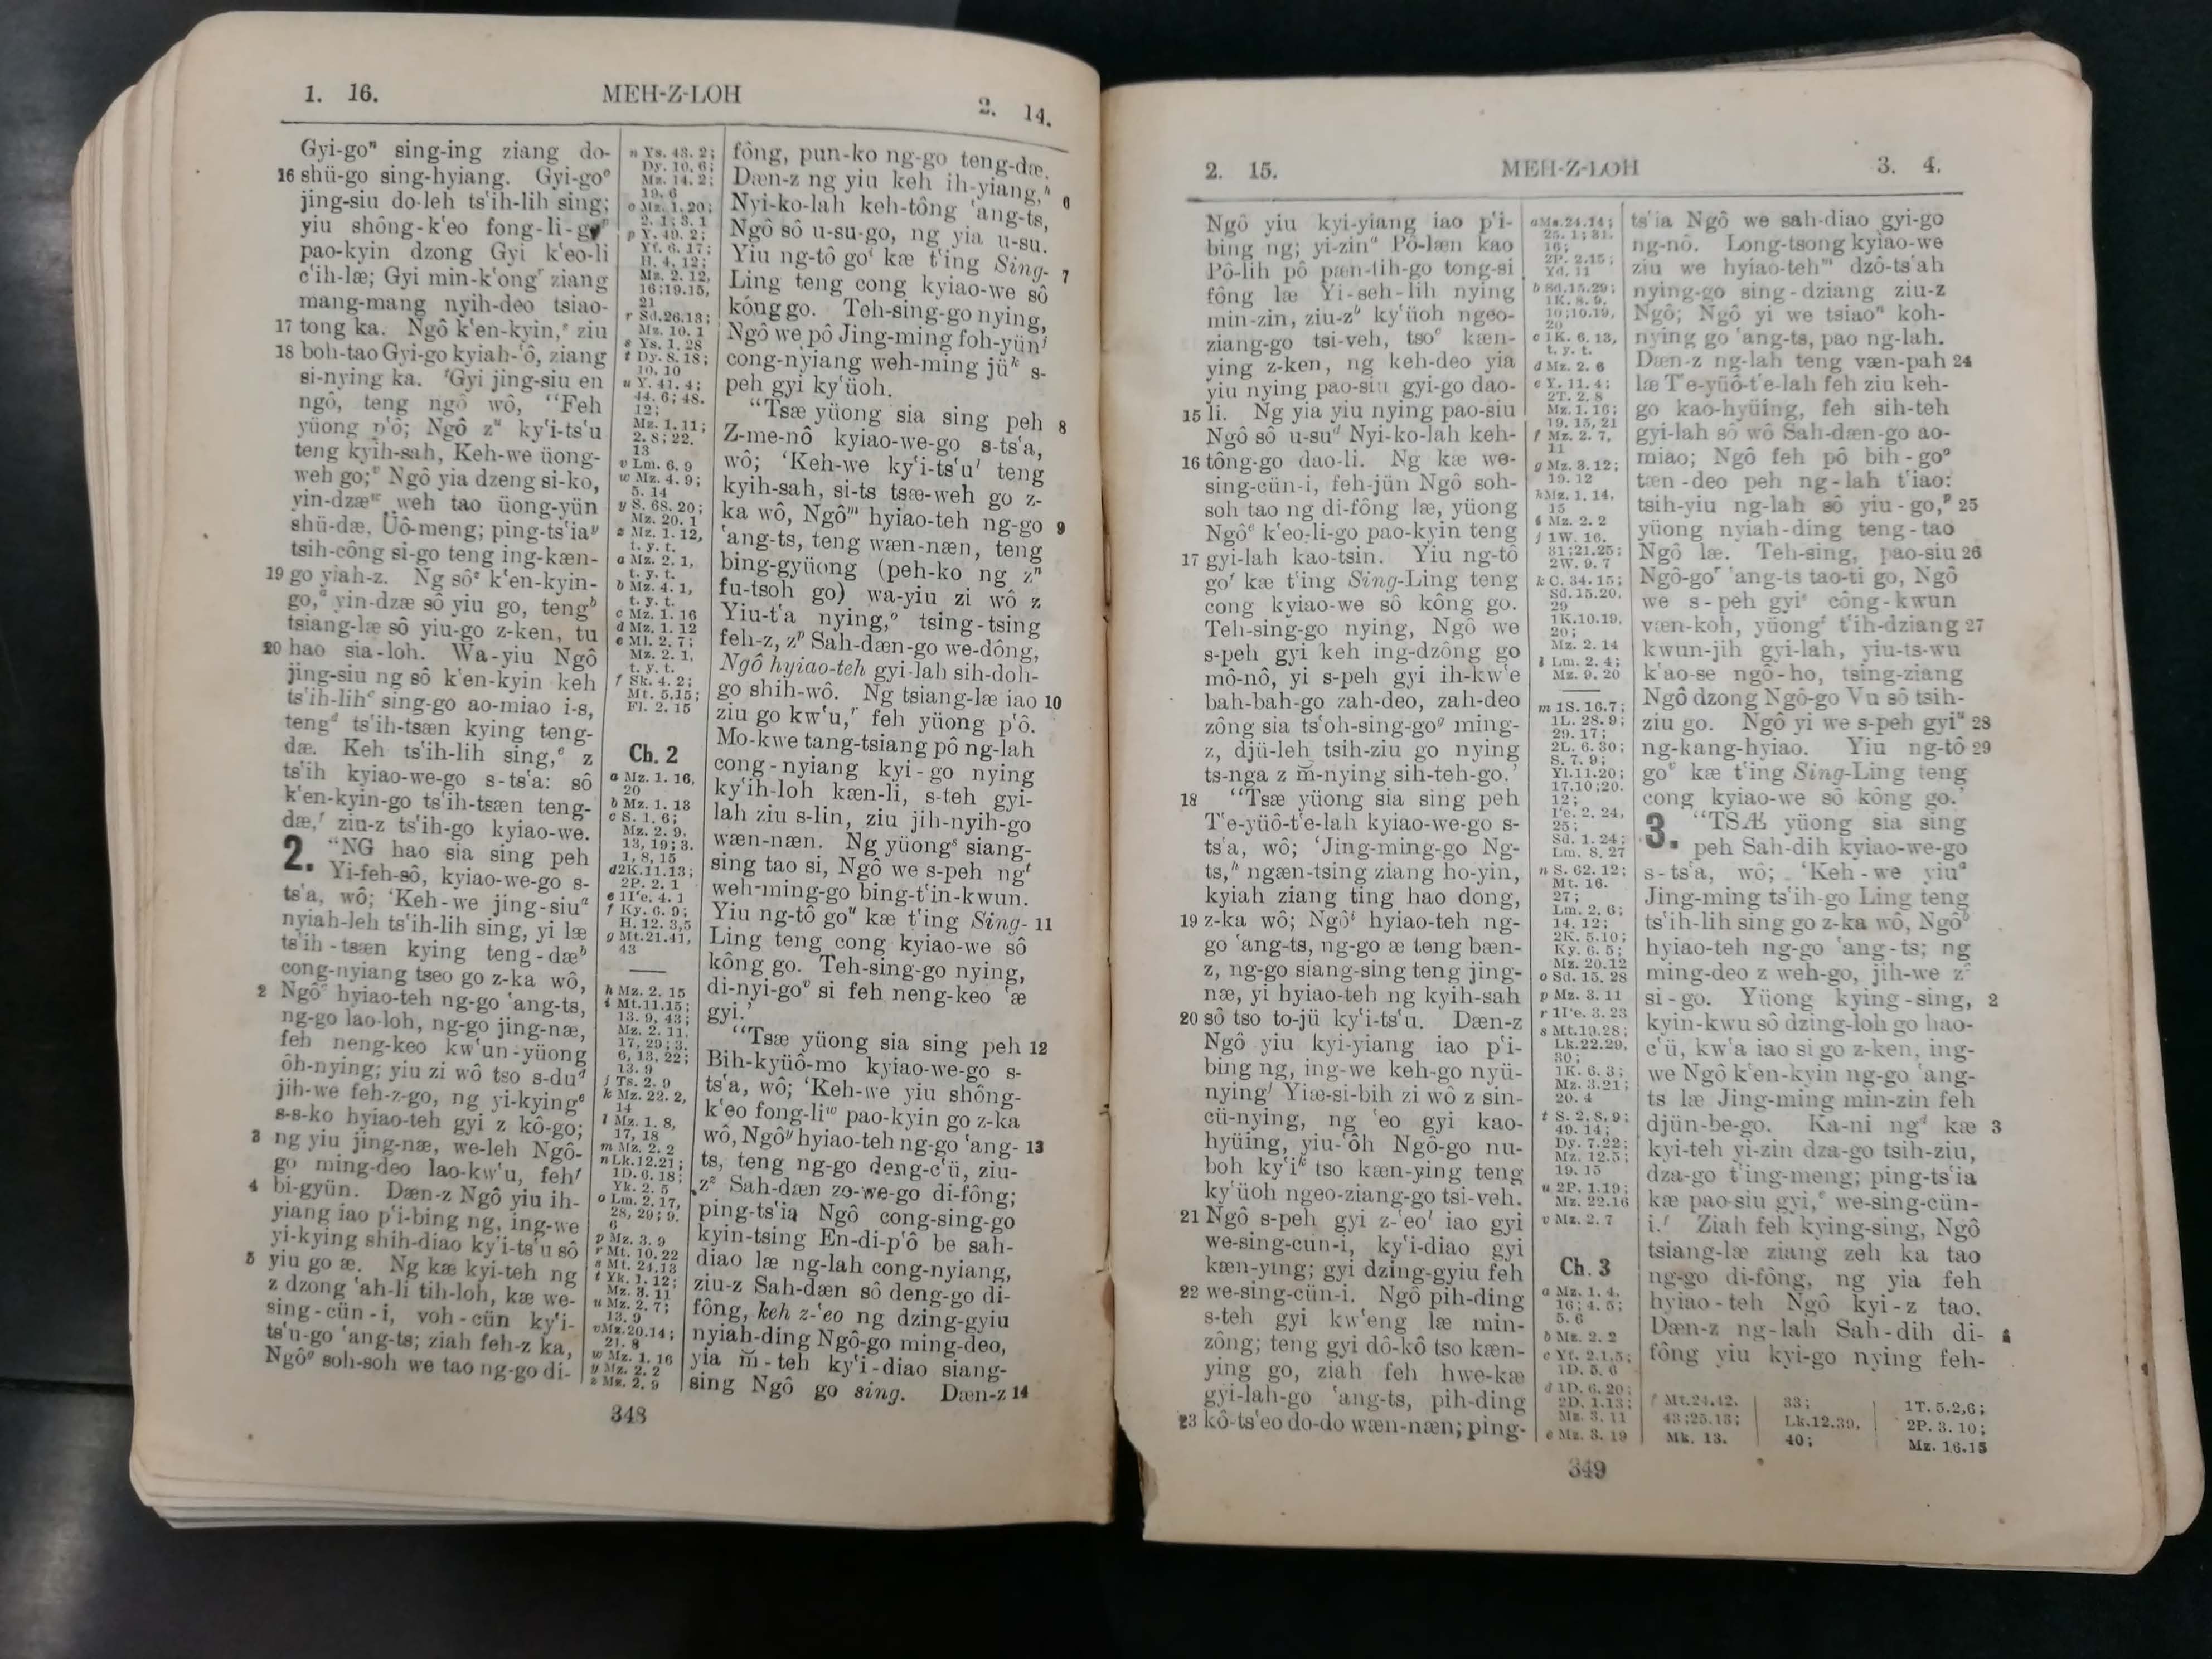 1. 16.
MEH-Z-LOH
2. 14.
Gyi-goⁿ sing-ing ziang do-
16 shü-go sing-hyiang. Gyi-goᵒ
jing-siu do-leh tsʻih-lih sing;
yiu shông-kʻeo fong-li-go
pao-kyin dzong Gyi kʻeo-li
cʻih-læ; Gyi min-kʻongʳ ziang
mang-mang nyih-deo tsiao-
17 tong ka. Ngô kʻen-kyin,ˢ ziu
18 boh-tao Gyi-go kyiah-ʻô, ziang
si-nying ka. ᵗGyi jing-siu en
ngô, teng ngô wô, “Feh
yüong pʻô; Ngô zᵘ kyʻi-tsʻu
teng kyih-sah, Keh-we üong-
weh go;ᵛ Ngô yia dzeng si-ko,
yin-dzæʷ weh tao üong-yün
shü-dæ, Üô-meng; ping-tsʻiaʸ
tsih-công si-go teng ing-kæn-
19 go yiah-z. Ng sôᶻ kʻen-kyin-
go,ᵃ yin-dzæ sô yiu go, tengᵇ
tsiang-læ sô yiu-go z-ken, tu
20 hao sia-loh. Wa-yiu Ngô
jing-siu ng sô kʻen-kyin keh
tsʻih-lihᶜ sing-go ao-miao i-s,
tengᵈ tsʻih-tsæn kying teng-
dæ. Keh tsʻih-lih sing,ᵉ z
tsʻih kyiao-we-go s-tsʻa: sô
kʻen-kyin-go tsʻih-tsæn teng-
dæ,ᶠ ziu-z tsʻih-go kyiao-we.
2. “NG hao sia sing peh
Yi-feh-sô, kyiao-we-go s-
tsʻa, wô; ‘Keh-we jing-siuᵃ
nyiah-leh tsʻih-lih sing, yi læ
tsʻih-tsæn kying teng-dæᵇ
cong-nyiang tseo go z-ka wô,
2 Ngôᶜ hyiao-teh ng-go ʻang-ts,
ng-go lao-loh, ng-go jing-næ,
feh neng-keo kwʻun-yüong
ôh-nying; yiu zi wô tso s-duᵈ
jih-we feh-z-go, ng yi-kyingᵉ
s-s-ko hyiao-teh gyi z kô-go;
3 ng yiu jing-næ, we-leh Ngô-
go ming-deo lao-kwʻu, fehᶠ
4 bi-gyün. Dæn-z Ngô yiu ih-
yiang iao pʻi-bing ng, ing-we
yi-kying shih-diao kyʻi-tsʻu sô
5 yiu go æ. Ng kæ kyi-teh ng
z dzong ʻah-li tih-loh, kæ we-
sing-cün-i, voh-cün kyʻi-
tsʻu-go ʻang-ts; ziah feh-z ka,
Ngôᵍ soh-soh we tao ng-go di-
n Ys. 43. 2;
Dy. 10. 6;
Mz. 14. 2;
19. 6
o Mz. 1. 20;
2. 1; 3. 1
p Y. 49. 2;
Yf. 6. 17;
H. 4. 12;
Mz. 2. 12,
16; 19. 15,
21
r Sd. 26. 13;
Mz. 10. 1
s Ys. 1. 28
t Dy. 8. 18;
10. 10
u Y. 41. 4;
44. 6; 48.
12;
Mz. 1. 11;
2. 8; 22.
13
v Lm. 6. 9
w Mz. 4. 9;
5. 14
y S. 68. 20;
Mz. 20. 1
z Mz. 1. 12,
t. y. t.
a Mz. 2. 1,
t. y. t.
b Mz. 4. 1,
t. y. t.
c Mz. 1. 16
d Mz. 1. 12
e Ml. 2. 7;
Mz. 2. 1,
t. y. t.
f Sk. 4. 2;
Mt. 5. 15;
Fl. 2. 15
Ch. 2
a Mz. 1. 16,
20
b Mz. 1. 13
c S. 1. 6;
Mz. 2. 9,
13, 19; 3.
1, 8, 15
d 2K. 11. 13;
2P. 2. 1
e 1Iʻe. 4. 1
f Ky. 6. 9;
H. 12. 3,5
g Mt. 21. 41,
43
h Mz. 2. 15
i Mt. 11. 15;
13. 9, 43;
Mz. 2. 11,
17, 29; 3.
6, 13, 22;
13. 9
j Ts. 2. 9
k Mz. 22. 2,
14
l Mz. 1. 8,
17, 18
m Mz. 2. 2
n Lk. 12. 21;
1D. 6. 18;
Yk. 2. 5
o Lm. 2. 17,
28, 29; 9.
6
p Mz. 3. 9
r Mt. 10. 22
s Mt. 24. 13
t Yk. 1. 12;
Mz. 3. 11
u Mz. 2. 7;
13. 9
v Mz. 20. 14;
21. 8
w Mz. 1. 16
y Mz. 2. 2
z Mz. 2. 9
fông, pun-ko ng-go teng-dæ.
Dæn-z ng yiu keh ih-yiang,ʰ 6
Nyi-ko-lah keh-tông ʻang-ts,
Ngô sô u-su-go, ng yia u-su.
Yiu ng-tô goⁱ kæ tʻing Sing- 7
Ling teng cong kyiao-we sô
kóng go. Teh-sing-go nying,
Ngô we pô Jing-ming foh-yünʲ
cong-nyiang weh-ming jüᵏ s-
peh gyi kyʻüoh.
“Tsæ yüong sia sing peh 8
Z-me-nô kyiao-we-go s-tsʻa,
wô; ‘Keh-we kyʻi-tsʻuˡ teng
kyih-sah, si-ts tsæ-weh go z-
ka wô, Ngôᵐ hyiao-teh ng-go 9
ʻang-ts, teng wæn-næn, teng
bing-gyüong (peh-ko ng zⁿ
fu-tsoh go) wa-yiu zi wô z
Yiu-tʻa nying,ᵒ tsing-tsing
feh-z, zᵖ Sah-dæn-go we-dông,
Ngô hyiao-teh gyi-lah sih-doh-
go shih-wô. Ng tsiang-læ iao 10
ziu go kwʻu,ʳ feh yüong pʻô.
Mo-kwe tang-tsiang pô ng-lah
cong-nyiang kyi-go nying
kyʻih-loh kæn-li, s-teh gyi-
lah ziu s-lin, ziu jih-nyih-go
wæn-næn. Ng yüongˢ siang-
sing tao si, Ngô we s-peh ngᵗ
weh-ming-go bing-tʻin-kwun.
Yiu ng-tô goᵘ kæ tʻing Sing- 11
Ling teng cong kyiao-we sô
kông go. Teh-sing-go nying,
di-nyi-goᵛ si feh neng-keo ʻæ
gyi.’
“Tsæ yüong sia sing peh 12
Bih-kyüô-mo kyiao-we-go s-
tsʻa, wô; ‘Keh-we yiu shông-
kʻeo fong-liʷ pao-kyin go z-ka
wô, Ngôʸ hyiao-teh ng-go ʻang- 13
ts, teng ng-go deng-cʻü, ziu-
zᶻ Sah-dæn zo-we-go di-fông;
ping-tsʻia Ngô cong-sing-go
kyin-tsing En-di-pʻô be sah-
diao læ ng-lah cong-nyiang,
ziu-z Sah-dæn sô deng-go di-
fông, keh z-ʻeo ng dzing-gyiu
nyiah-ding Ngô-go ming-deo,
yia m̄-teh kyʻi-diao siang-
sing Ngô go sing. Dæn-z 14
348
2. 15.
MEH-Z-LOH
3. 4.
Ngô yiu kyi-yiang iao pʻi-
bing ng; yi-zinᵃ Pô-læn kao
Pô-lih pô pæn-tih-go tong-si
fông læ Yi-seh-lih nying
min-zin, ziu-zᵇ kyʻüoh ngeo-
ziang-go tsi-veh, tsoᶜ kæn-
ying z-ken, ng keh-deo yia
yiu nying pao-siu gyi-go dao-
15 li. Ng yia yiu nying pao-siu
Ngô sô u-suᵈ Nyi-ko-lah keh-
16 tông-go dao-li. Ng kæ we-
sing-cün-i, feh-jün Ngô soh-
soh tao ng di-fông læ, yüong
Ngôᵉ kʻeo-li-go pao-kyin teng
17 gyi-lah kao-tsin. Yiu ng-tô
goᶠ kæ tʻing Sing-Ling teng
cong kyiao-we sô kông go.
Teh-sing-go nying, Ngô we
s-peh gyi keh ing-dzông go
mô-nô, yi s-peh gyi ih-kwʻe
bah-bah-go zah-deo, zah-deo
zông sia tsʻoh-sing-goᵍ ming-
z, djü-leh tsih-ziu go nying
ts-nga z m̄-nying sih-teh-go.’
18 “Tsæ yüong sia sing peh
Tʻe-yüô-tʻe-lah kyiao-we-go s-
tsʻa, wô; ‘Jing-ming-go Ng-
ts,ʰ ngæn-tsing ziang ho-yin,
kyiah ziang ting hao dong,
19 z-ka wô; Ngôⁱ hyiao-teh ng-
go ʻang-ts, ng-go æ teng bæn-
z, ng-go siang-sing teng jing-
næ, yi hyiao-teh ng kyih-sah
20 sô tso to-jü kyʻi-tsʻu. Dæn-z
Ngô yiu kyi-yiang iao pʻi-
bing ng, ing-we keh-go nyü-
nyingʲ Yiæ-si-bih zi wô z sin-
cü-nying, ng ʻeo gyi kao-
hyüing, yiu-ʻôh Ngô-go nu-
boh kyʻiᵏ tso kæn-ying teng
kyʻüoh ngeo-ziang-go tsi-veh.
21 Ngô s-peh gyi z-ʻeoˡ iao gyi
we-sing-cün-i, kyʻi-diao gyi
kæn-ying; gyi dzing-gyiu feh
22 we-sing-cün-i. Ngô pih-ding
s-teh gyi kwʻeng læ min-
zông; teng gyi dô-kô tso kæn-
ying go, ziah feh hwe-kæ
gyi-lah-go ʻang-ts, pih-ding
23 kô-tsʻeo do-do wæn-næn; ping-
a Ms. 24. 14;
25. 1; 31.
16;
2P. 2. 15;
Yd. 11
b Sd. 15. 29;
1K. 8. 9,
10; 10. 19,
20
c 1K. 6. 13,
t. y. t.
d Mz. 2. 6
e Y. 11. 4;
2T. 2. 8
Mz. 1. 16;
19. 15, 21
f Mz. 2. 7,
11
g Mz. 3. 12;
19. 12
h Mz. 1. 14,
15
i Mz. 2. 2
j 1W. 16.
31; 21. 25;
2W. 9. 7
k C. 34. 15;
Sd. 15. 20,
29
1K. 10. 19,
20;
Mz. 2. 14
l Lm. 2. 4;
Mz. 9. 20
m 1S. 16. 7;
1L. 28. 9;
29. 17;
2L. 6. 30;
S. 7. 9;
Yl. 11. 20;
17. 10; 20.
12;
Iʻe. 2. 24,
25;
Sd. 1. 24;
Lm. 8. 27
n S. 62. 12;
Mt. 16.
27;
Lm. 2. 6;
14. 12;
2K. 5. 10;
Ky. 6. 5;
Mz. 20. 12
o Sd. 15. 28
p Mz. 3. 11
r 1Iʻe. 3. 23
s Mt. 19. 28;
Lk. 22. 29,
30;
1K. 6. 3;
Mz. 3. 21;
20. 4
t S. 2. 8, 9;
49. 14;
Dy. 7. 22;
Mz. 12. 5;
19. 15
u 2P. 1. 19;
Mz. 22. 16
v Mz. 2. 7
Ch. 3
a Mz. 1. 4,
16; 4. 5;
5. 6
b Mz. 2. 2
c Yf. 2. 1,5;
1D. 5. 6
d 1D. 6. 20;
2D. 1. 13;
Mz. 3. 11
e Mz. 3. 19
tsʻia Ngô we sah-diao gyi-go
ng-nô. Long-tsong kyiao-we
ziu we hyiao-tehᵐ dzô-tsʻah
nying-go sing-dziang ziu-z
Ngô; Ngô yi we tsiaoⁿ koh-
nying go ʻang-ts, pao ng-lah.
Dæn-z ng-lah teng væn-pah 24
læ Tʻe-yüô-tʻe-lah feh ziu keh-
go kao-hyüing, feh sih-teh
gyi-lah sô wô Sah-dæn-go ao-
miao; Ngô feh pô bih-goᵒ
tæn-deo peh ng-lah tʻiao:
tsih-yiu ng-lah sô yiu-go,ᵖ 25
yüong nyiah-ding teng-tao
Ngô læ. Teh-sing, pao-siu 26
Ngô-goʳ ʻang-ts tao-ti go, Ngô
we s-peh gyiˢ công-kwun
væn-koh, yüongᵗ tʻih-dziang 27
kwun-jih gyi-lah, yiu-ts-wu
kʻao-se ngô-ho, tsing-ziang
Ngô dzong Ngô-go Vu sô tsih-
ziu go. Ngô yi we s-peh gyiᵘ 28
ng-kang-hyiao. Yiu ng-tô 29
goᵛ kæ tʻing Sing-Ling teng
cong kyiao-we sô kông go.’
3. “TSÆ yüong sia sing
peh Sah-dih kyiao-we-go
s-tsʻa, wô; ‘Keh-we yiuᵃ
Jing-ming tsʻih-go Ling teng
tsʻih-lih sing go z-ka wô, Ngôᵇ
hyiao-teh ng-go ʻang-ts; ng
ming-deo z weh-go, jih-we zᶜ
si-go. Yüong kying-sing, 2
kyin-kwu sô dzing-loh go hao-
cʻü, kwʻa iao si go z-ken, ing-
we Ngô kʻen-kyin ng-go ʻang-
ts læ Jing-ming min-zin feh
djün-be-go. Ka-ni ngᵈ kæ 3
kyi-teh yi-zin dza-go tsih-ziu,
dza-go tʻing-meng; ping-tsʻia
kæ pao-siu gyi,ᵉ we-sing-cün-
i.ᶠ Ziah feh kying-sing, Ngô
tsiang-læ ziang zeh ka tao
ng-go di-fông, ng yia feh
hyiao-teh Ngô kyi-z tao.
Dæn-z ng-lah Sah-dih di- 4
fông yiu kyi-go nying feh-
f Mt. 24. 42,
43; 25. 13;
Mk. 13.
33;
Lk. 12. 39,
40;
1T. 5. 2,6;
2P. 3. 10;
Mz. 16. 15
349